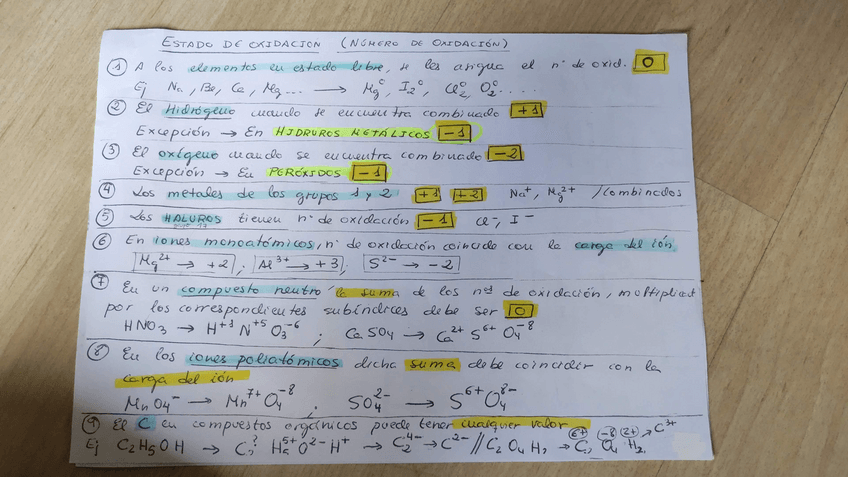 ESTADO DE OXIDACION (NÚMERO DE OXIDACIÓN)
① A los elementos en estado libre, se les asigua el nº de oxid. 0
Ej Na, Be, Ca, Mg... → Mg⁰, I₂⁰, Cl₂⁰, O₂⁰....
② El Hidrógeno cuando se encuentra combinado +1
Excepción → En HIDRUROS METÁLICOS -1
③ El oxígeno cuando se encuentra combinado -2
Excepción → En PERÓXIDOS -1
④ Los metales de los grupos 1 y 2 +1 +2 Na⁺, Mg²⁺ /combinados
⑤ Los HALUROS tienen nº de oxidación -1 Cl⁻, I⁻
⑥ En iones monoatómicos, nº de oxidación coincide con la carga del ión
Mg²⁺ → +2 ; Al³⁺ → +3 ; S²⁻ → -2
⑦ En un compuesto neutro la suma de los nºs de oxidación, multiplicad
por los correspondientes subíndices debe ser 0
HNO₃ → H⁺¹ N⁺⁵ O₃⁻⁶ ; CaSO₄ → Ca²⁺ S⁶⁺ O₄⁻⁸
⑧ En los iones poliatómicos dicha suma debe coincidir con la
carga del ión
MnO₄⁻ → Mn⁷⁺ O₄⁻⁸ ; SO₄²⁻ → S⁶⁺ O₄⁸⁻
⑨ El C en compuestos orgánicos puede tener cualquier valor
Ej C₂H₅OH → C₂^? H₅⁵⁺ O²⁻ H⁺ → C₂⁴⁻ → C²⁻ // C₂O₄H₂ → C₂⁶⁺ O₄⁻⁸ H₂²⁺ → C³⁺